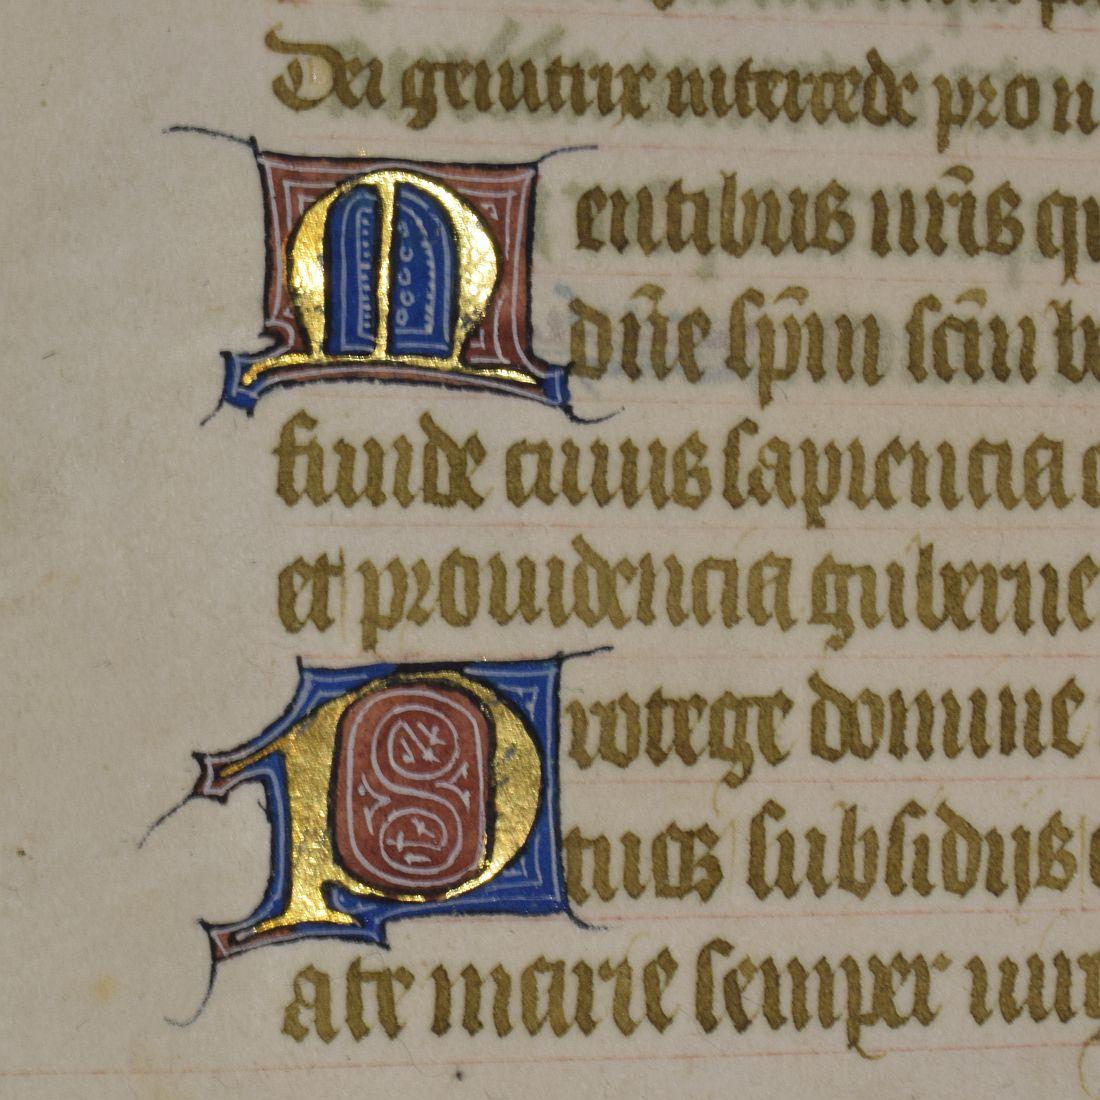 Dei genitrix intercede pro n
Mentibus nr̄is qu
dn̄e sp̄m sc̄m b
funde cuius sapiencia c
et prouidencia guberne
Protege domine
tuos subsidijs
ate marie semper uir